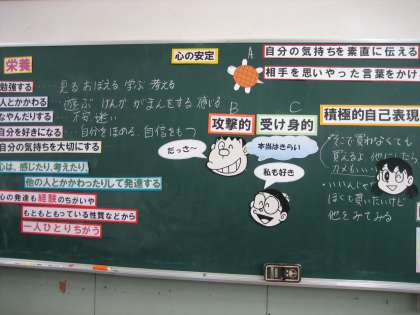 栄養
心の安定
A
自分の気持ちを素直に伝える
相手を思いやった言葉をかけ
勉強する
見る おぼえる 学ぶ 考える
人とかかわる
遊ぶ けんか がまんをする 感じる
なやんだりする
不安 迷い
自分を好きになる
自分をほめる 自信をもつ
自分の気持ちを大切にする
心は、感じたり、考えたり、
他の人とかかわったりして発達する
心の発達も経験のちがいや
もともともっている性質などから
一人ひとりちがう
B
攻撃的
C
受け身的
積極的自己表現
だっさ〜
本当はきらい
私も好き
そこで買わなくても
買えるよ 他の
カメも
いいんじゃ
ぼくも買いたいけど
他をみてみる